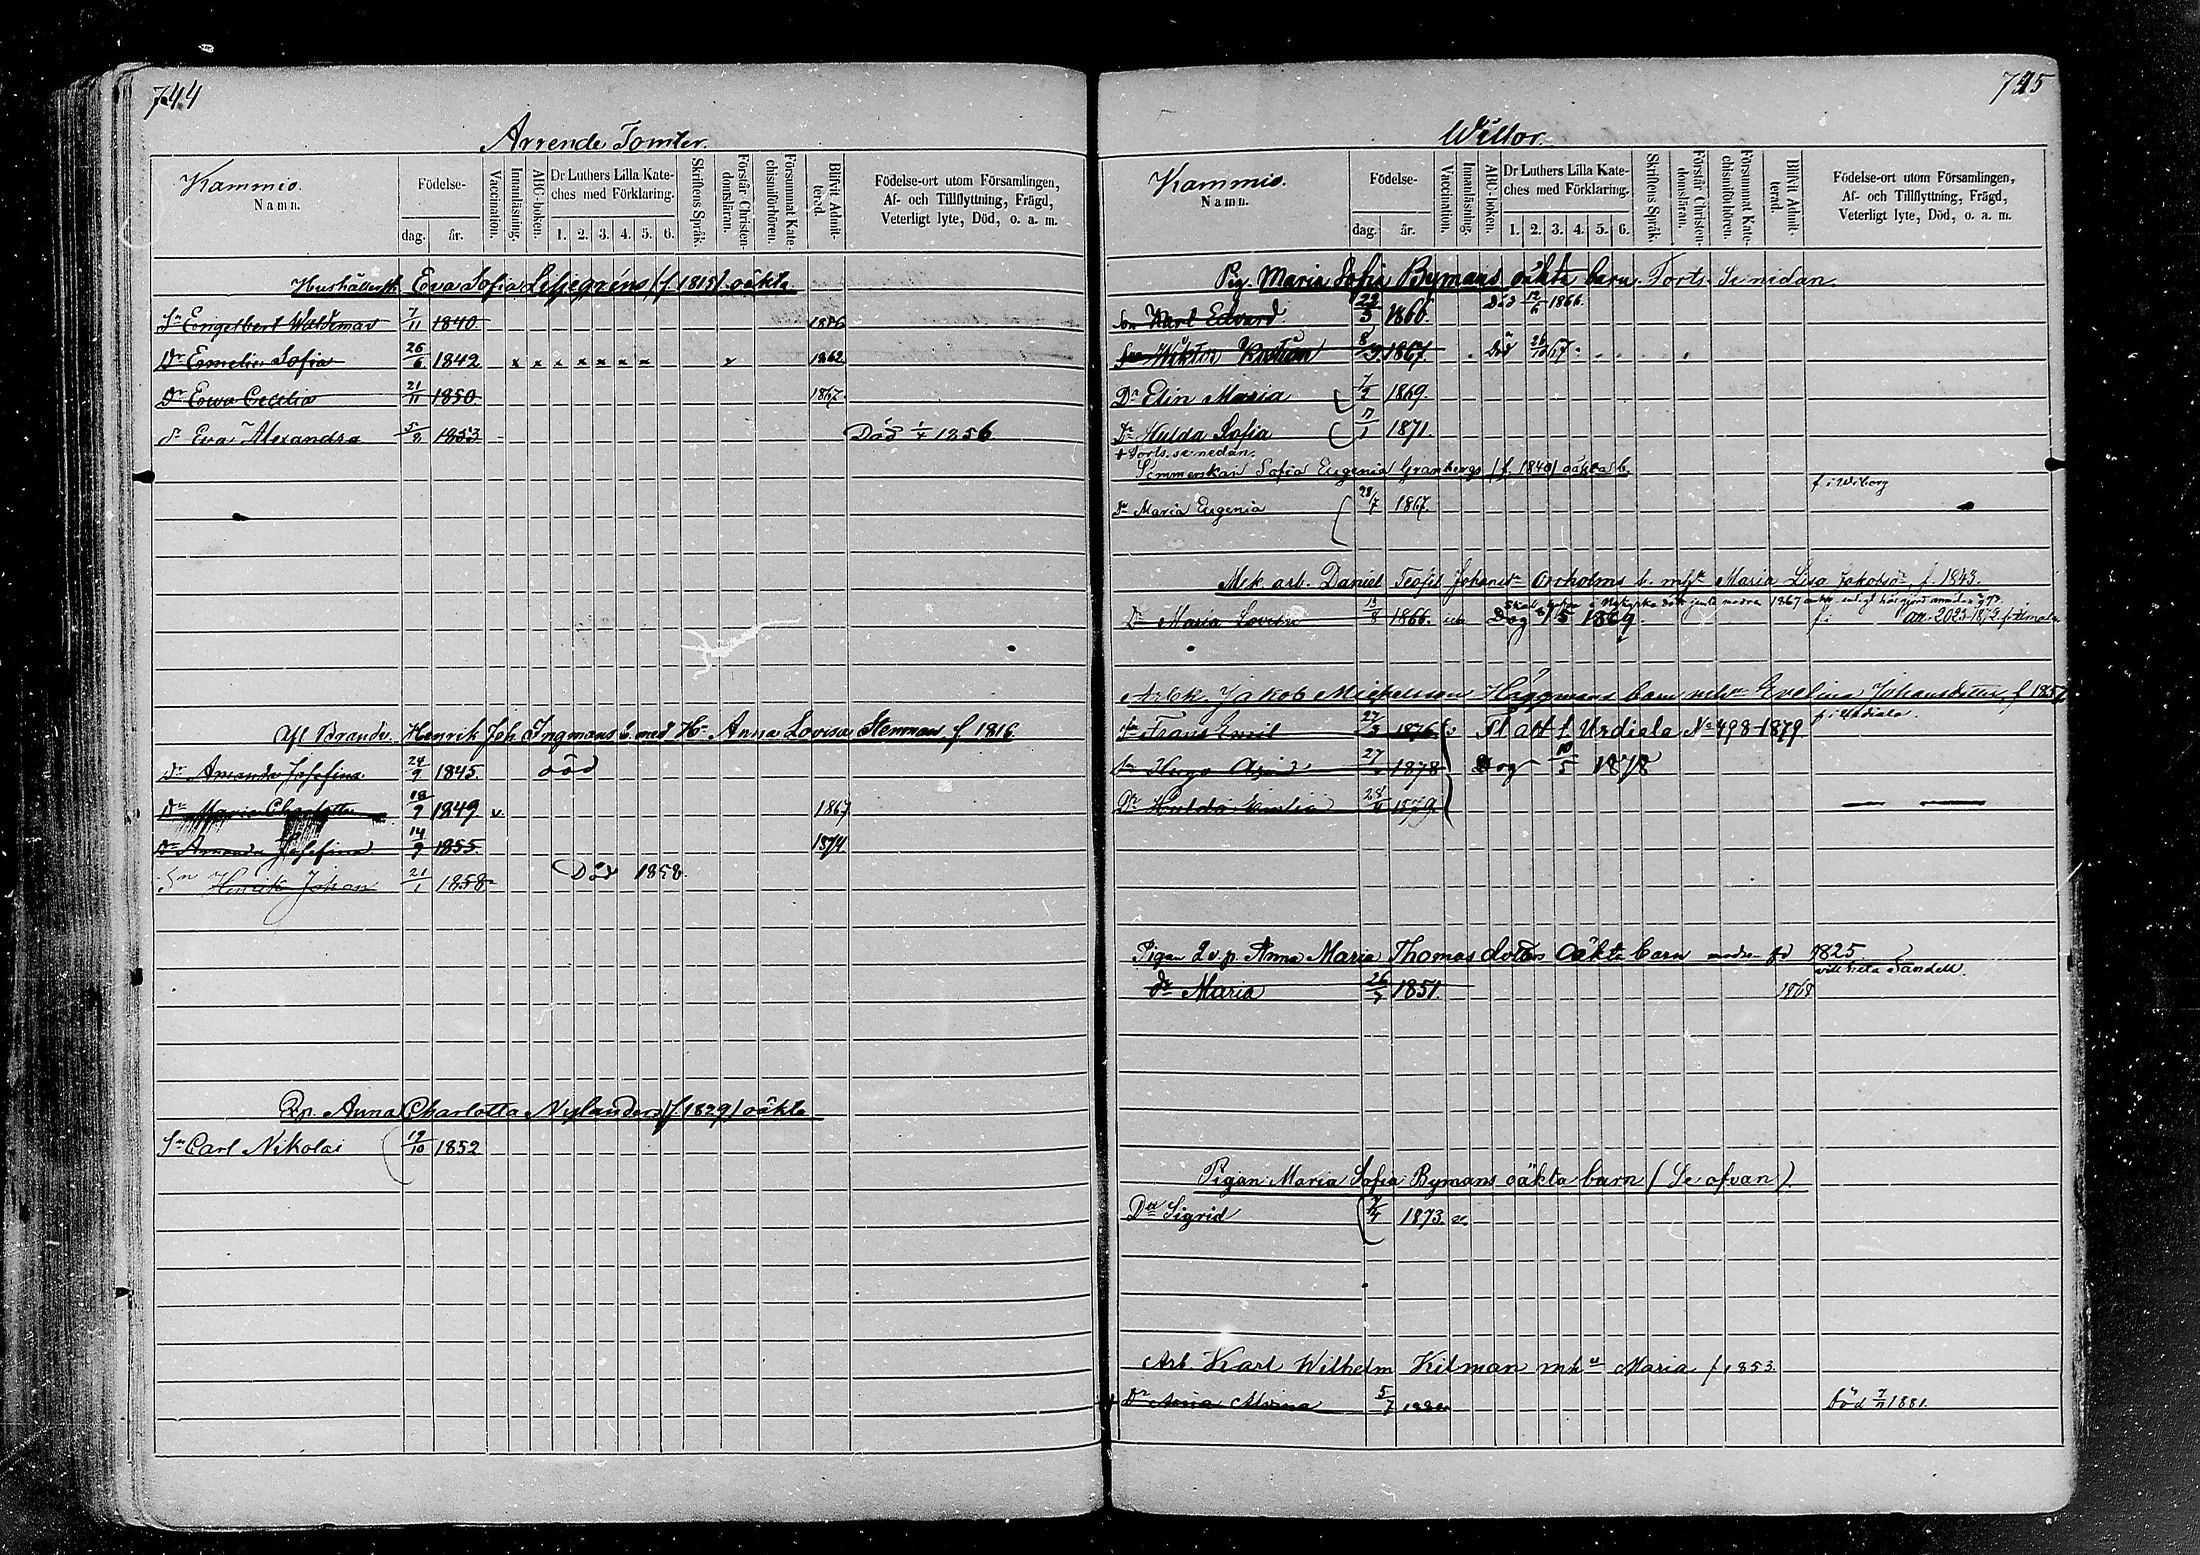 744
Arrende Tomter.
Kammio.
Namn.
Födelse-
dag. år.
Vaccination.
Innanläsning.
ABC-boken.
Dr Luthers Lilla Kate-
ches med Förklaring.
1. 2. 3. 4. 5. 6.
Skriftens Språk.
Förstår Christen-
domsläran.
Försummat Kate-
chismiförhören.
Blifvit Admit-
terad.
Födelse-ort utom Församlingen,
Af- och Tillflyttning, Frägd,
Veterligt lyte, Död, o. a. m.
Eva Sofia Liljegréns (f. 1815) oäkta
Sn Engelbert Waldemar 7/11 1840. 1856
Dr Emelie Sofia 26/6 1842 x x x x x x x x 1862
Dr Ewa Cecilia 21/11 1850 1867
Dr Eva Alexandra 5/8 1853 Död 1/4 1856
Afl Brandv. Henrik Joh Ingmans b. med Hu Anna Lovisa Stenman f 1816
Dr Amanda Josefina 24/9 1845. död
Dr Maria Charlotta 18/9 1849 v. 1867
Dr Amanda Josefina 14/9 1855. 1874
Sn Henrik Johan 21/1 1858 Död 1858.
Anna Charlotta Nylanders (f 1829) oäkta
Sn Carl Nikolai 19/10 1852
745
Kammio.
Namn.
Födelse-
dag. år.
Vaccination.
Innanläsning.
ABC-boken.
Dr Luthers Lilla Kate-
ches med Förklaring.
1. 2. 3. 4. 5. 6.
Skriftens Språk.
Förstår Christen-
domsläran.
Försummat Kate-
chismiförhören.
Blifvit Admit-
terad.
Födelse-ort utom Församlingen,
Af- och Tillflyttning, Frägd,
Veterligt lyte, Död, o. a. m.
Pig. Maria Sofia Bymans oäkta barn. Forts. Se nedan.
Son Karl Edvard 1866. Död 12/6 1866.
Son Wiktor Kristian 8/9 1867. Död 26/10 67.
Dr Elin Maria 7/2 1869.
Dr Hulda Sofia 1871.
+ Forts. se nedan.
Sömmerskan Sofia Eugenia Granbergs (f. 1840) oäkta b.
f. i Wiborg
Dr Maria Eugenia 28/7 1867.
Mek. arb. Daniel Teofil Johans Orrholms b. m hu Maria Lisa Jakobsdr f. 1843.
Dr Maria Lovisa 1866. Dog 1869.
Arbk. Jakob Mickelsson Häggmans barn mhu Evelina Johansdotter f 185
f. i Urdiala.
Sn Frans Emil 22/3 1876 Fl att t. Urdiala No 498-1879
Sn Hugo 27 1878 Dog 10/5 1878
Dr Hulda Emilia 28
Pigan Anna Maria Thomas dotters oäkta barn modren fd 1825
Dr Maria 26/7 1851. 1868
Pigan Maria Sofia Bymans oäkta barn (Se ofvan).
Dr Sigrid 1873.
Arb. Karl Wilhelm Kilman mhu Maria f 1853.
Dr Alvina 5/7 Död 1881.